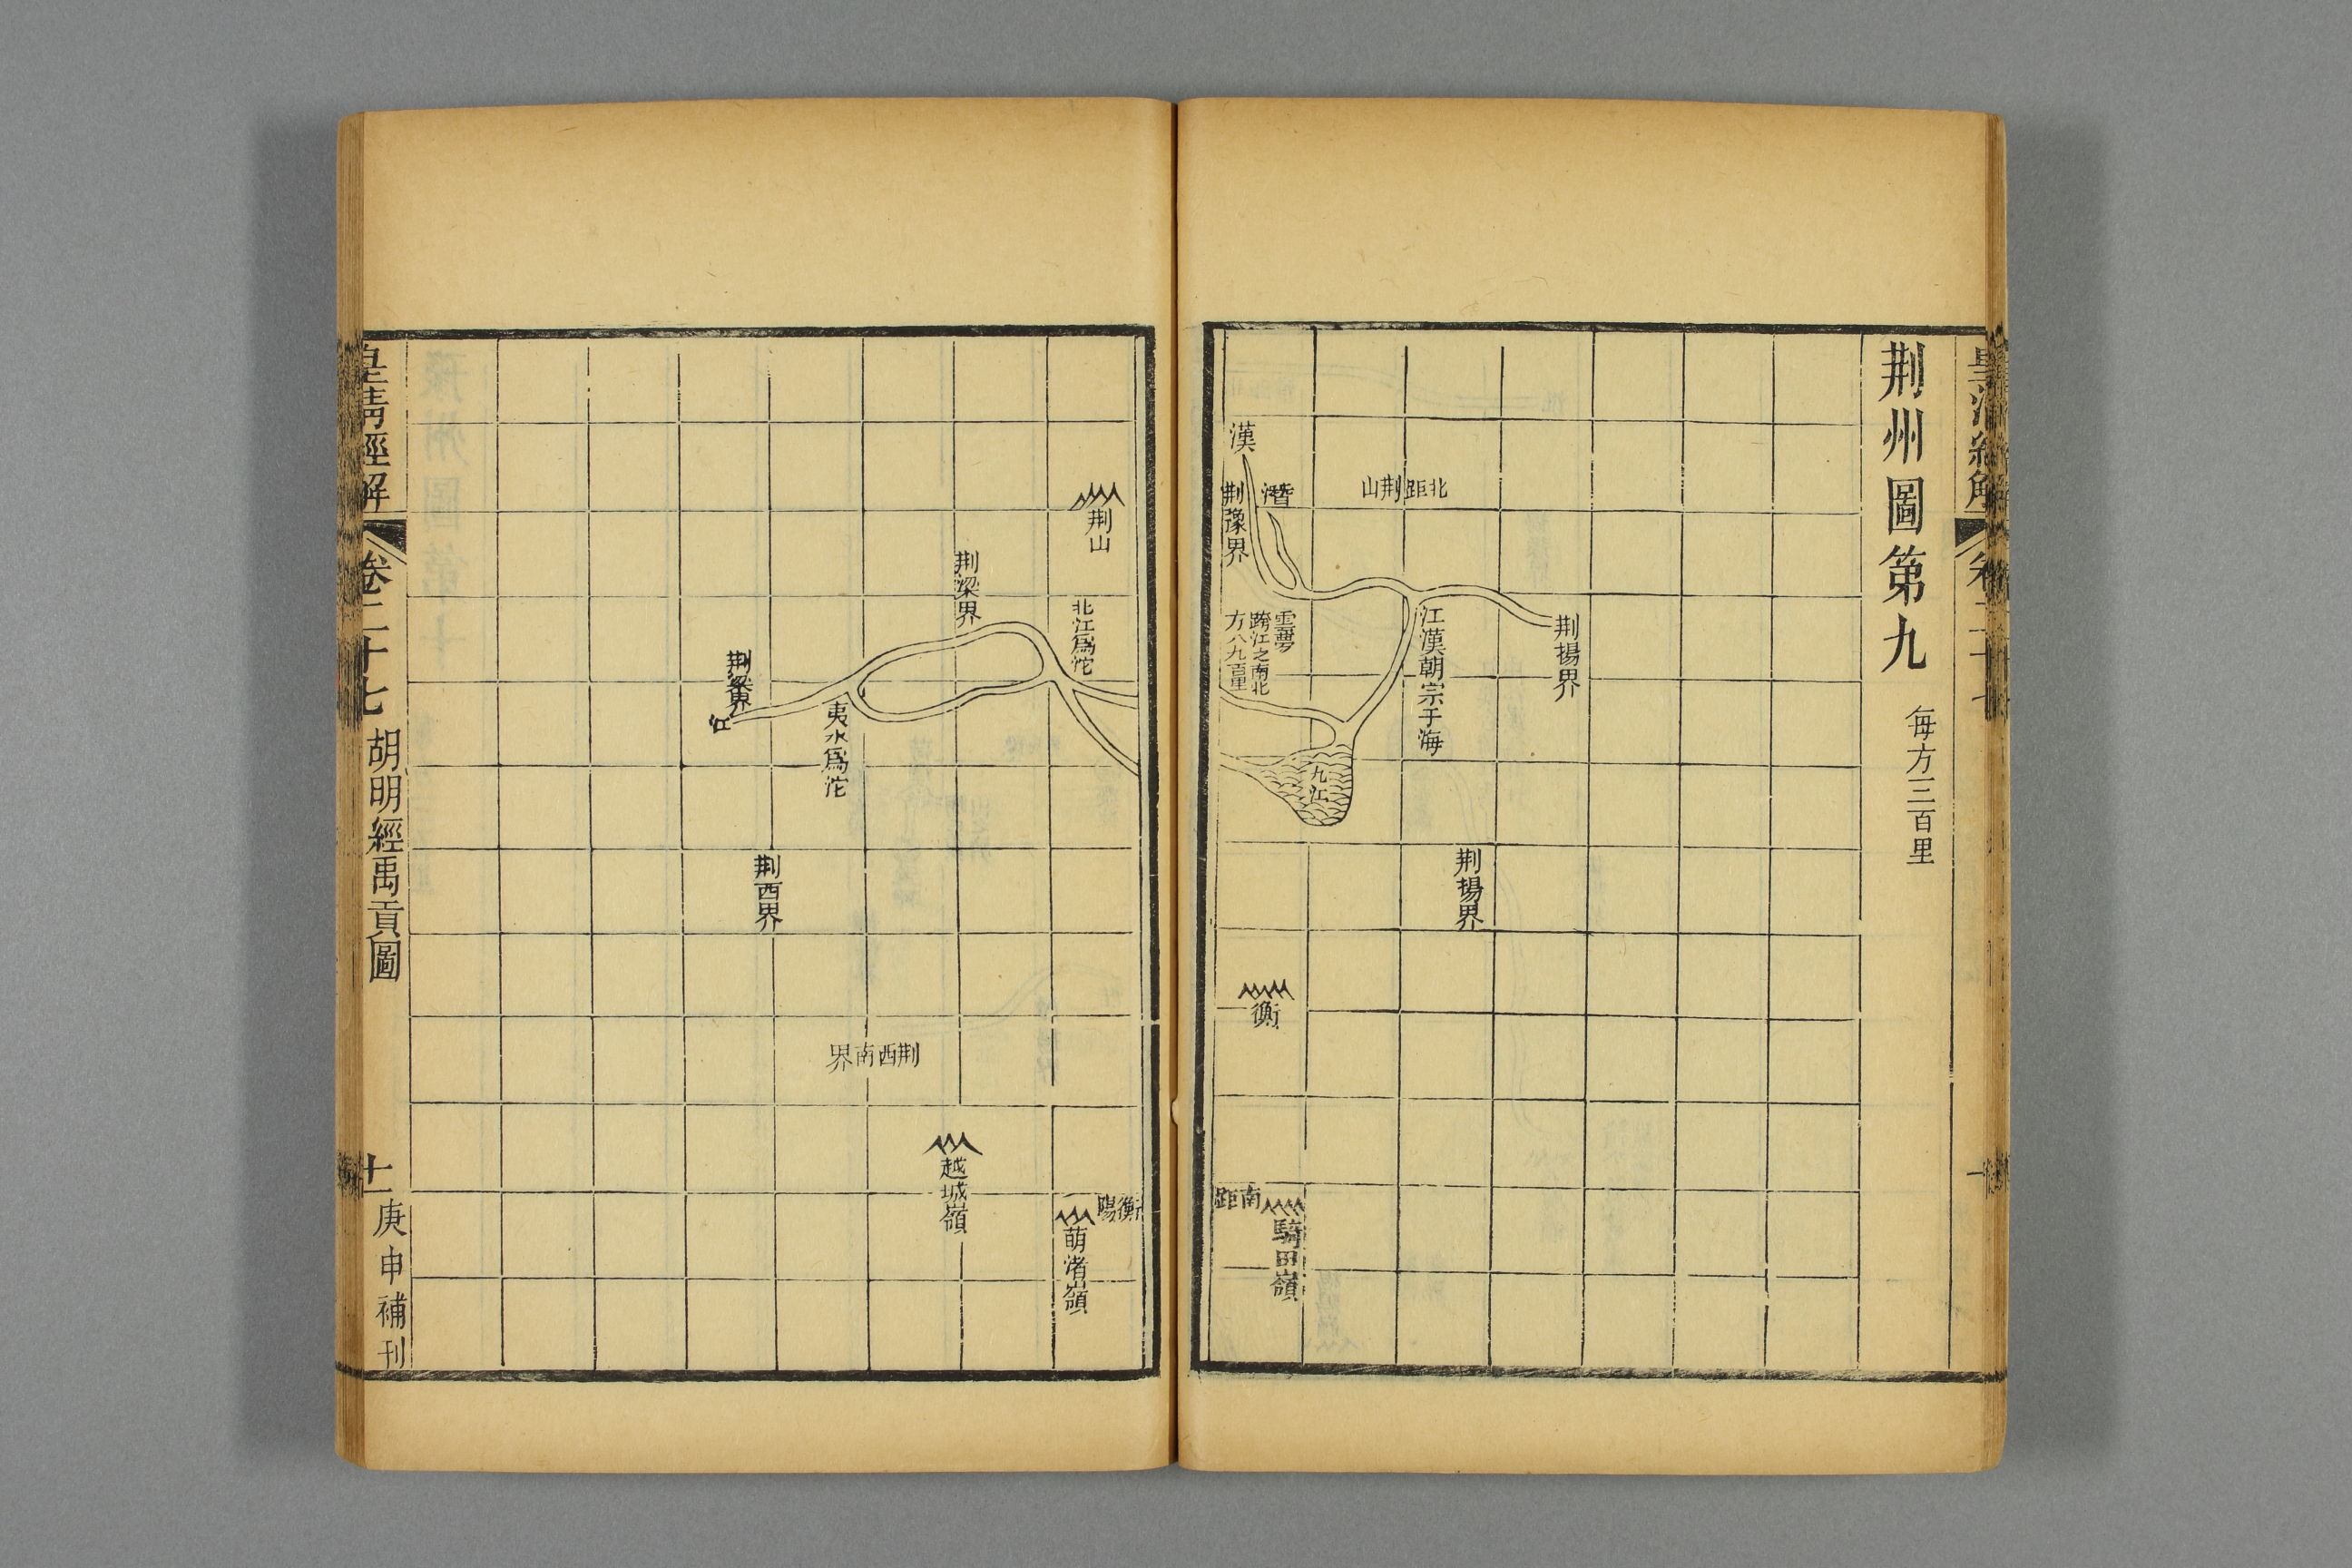 荆州圖第九
每方三百里
荆揚界
江漢朝宗于海
北距荆山
荆揚界
潛
漢
荆豫界
雲夢
跨江之南北
方八九百里
九江
衡
騎田嶺
南距
衡陽
荆山
北江爲沱
荆梁界
夷水爲沱
荆梁界
江
荆西界
荆西南界
越城嶺
萌渚嶺
皇清經解
卷二十七
胡明經禹貢圖
十一
庚申補刊